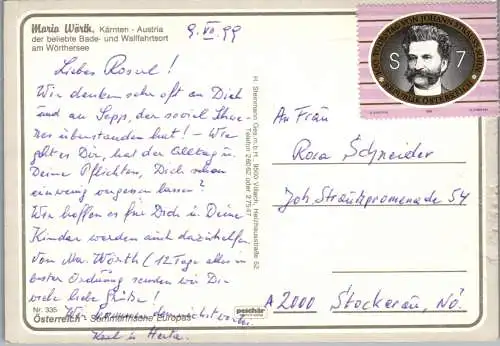 Maria Wörth, Kärnten - Austria
der beliebte Bade- und Wallfahrtsort
am Wörthersee
9. VII. 99
100. TODESTAG VON JOHANN STRAUSS SOHN
S 7
REPUBLIK ÖSTERREICH
Liebes Roserl!
Wir denken sehr oft an Dich
und an Sepp, der soviel
überstanden hat! – Wie
geht es Dir, hat der Alltag u.
Deine Pflichten, Dich schon
ein wenig vergessen lassen?
Wir hoffen es für Dich u. Deine
Kinder werden auch dazu helfen.
Von Ma. Wörth (12 Tage alles in
bester Ordnung senden wir Dir
viele liebe Grüße!
Wir kommen demnächst vorbei
Karl u. Herta.
H. Steinmann Ges.m.b.H., 9500 Villach, Heizhausstraße 52
Telefon 24862 oder 27547
An Frau
Rosa Schneider
Joh. Straußpromenade 54
A 2000 Stockerau, NÖ.
Nr. 335
Österreich - Sommerfrische Europas
peschär